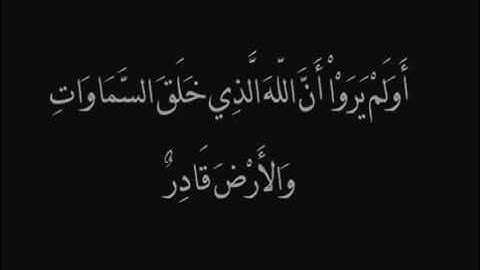 أَوَلَمْ يَرَوْاْ أَنَّ اللّهَ الَّذِي خَلَقَ السَّمَاوَاتِ
وَالأَرْضَ قَادِرٌ